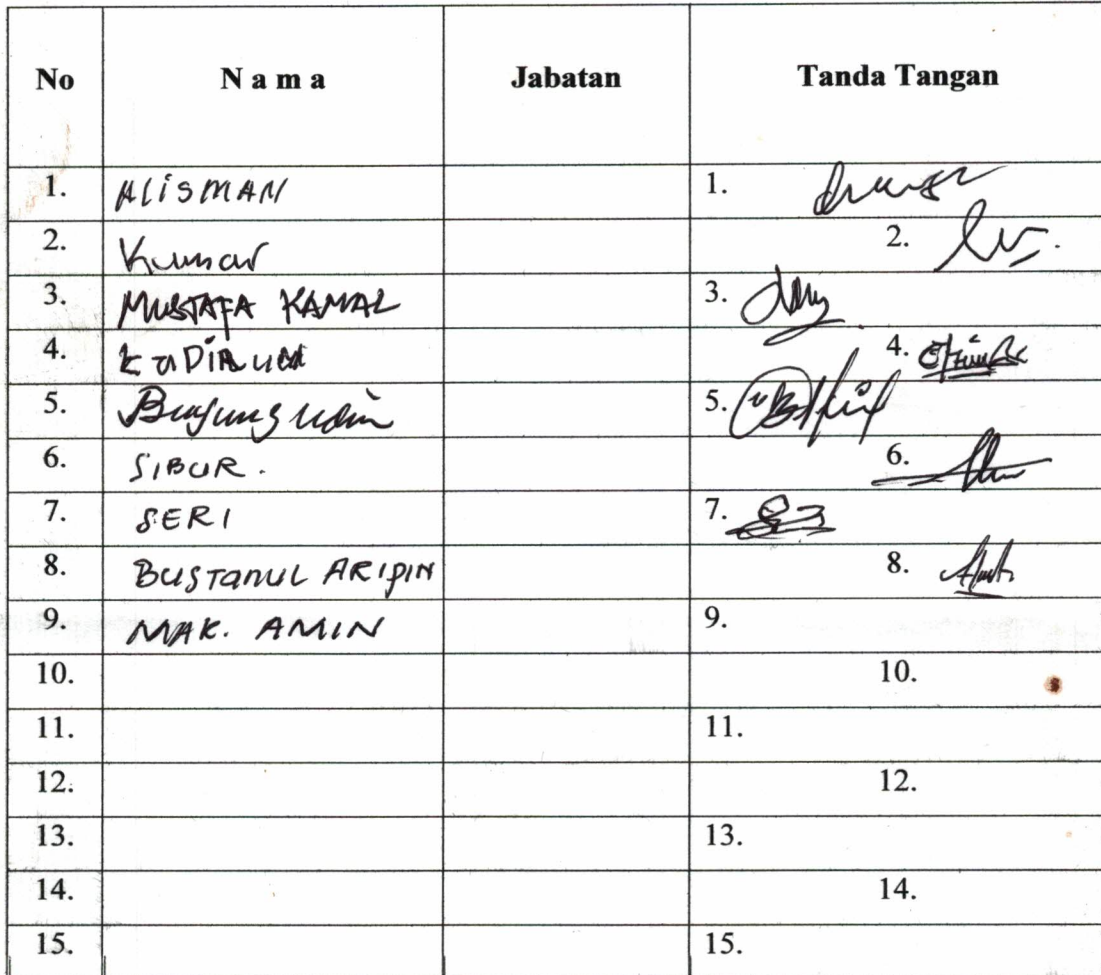 No Nama Jabatan Tanda Tangan
1. ALISMAN 1.
2. Kumar 2.
3. MUSTAFA KAMAL 3.
4. 4.
5. Bujung udin 5.
6. SIBUR. 6.
7. SERI 7.
8. BUSTANUL ARIPIN 8.
9. MAK. AMIN 9.
10. 10.
11. 11.
12. 12.
13. 13.
14. 14.
15. 15.